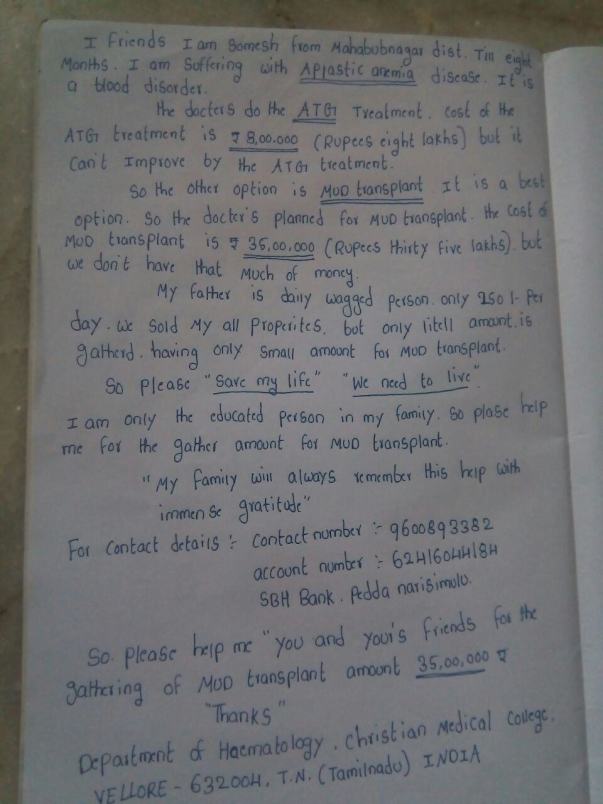 I Friends I am Somesh from Mahabubnagar dist. Till eight
Months. I am Suffering with Aplastic anemia disease. It is
a blood disorder.
the docters do the ATG Treatment. Cost of the
ATG treatment is ₹ 8,00.000 (Rupees eight lakhs) but it
can't Improve by the ATG treatment.
So the other option is MUD transplant. It is a best
option. So the doctor's planned for MUD transplant. the Cost of
MUD transplant is ₹ 35,00,000 (Rupees thirty five lakhs). but
we don't have that Much of money.
My father is daily wagged person. only 250/- Per
day. we Sold My all Properites. but only litell amount is
gatherd. having only Small amount for MUD transplant.
So Please "Save my life" "We need to live".
I am only the educated person in my family. So plase help
me for the gather amount for MUD transplant.
"My Family will always remember this help with
immense gratitude"
For Contact details :- Contact number :- 9600893382
account number :- 62416044184
SBH Bank. Pedda narisimulu.
So. Please help me "you and your's friends for the
gathering of MUD transplant amount 35,00,000 ₹
"Thanks"
Department of Haematology. Christian Medical College.
VELLORE - 632004, T.N. (Tamilnadu) INDIA